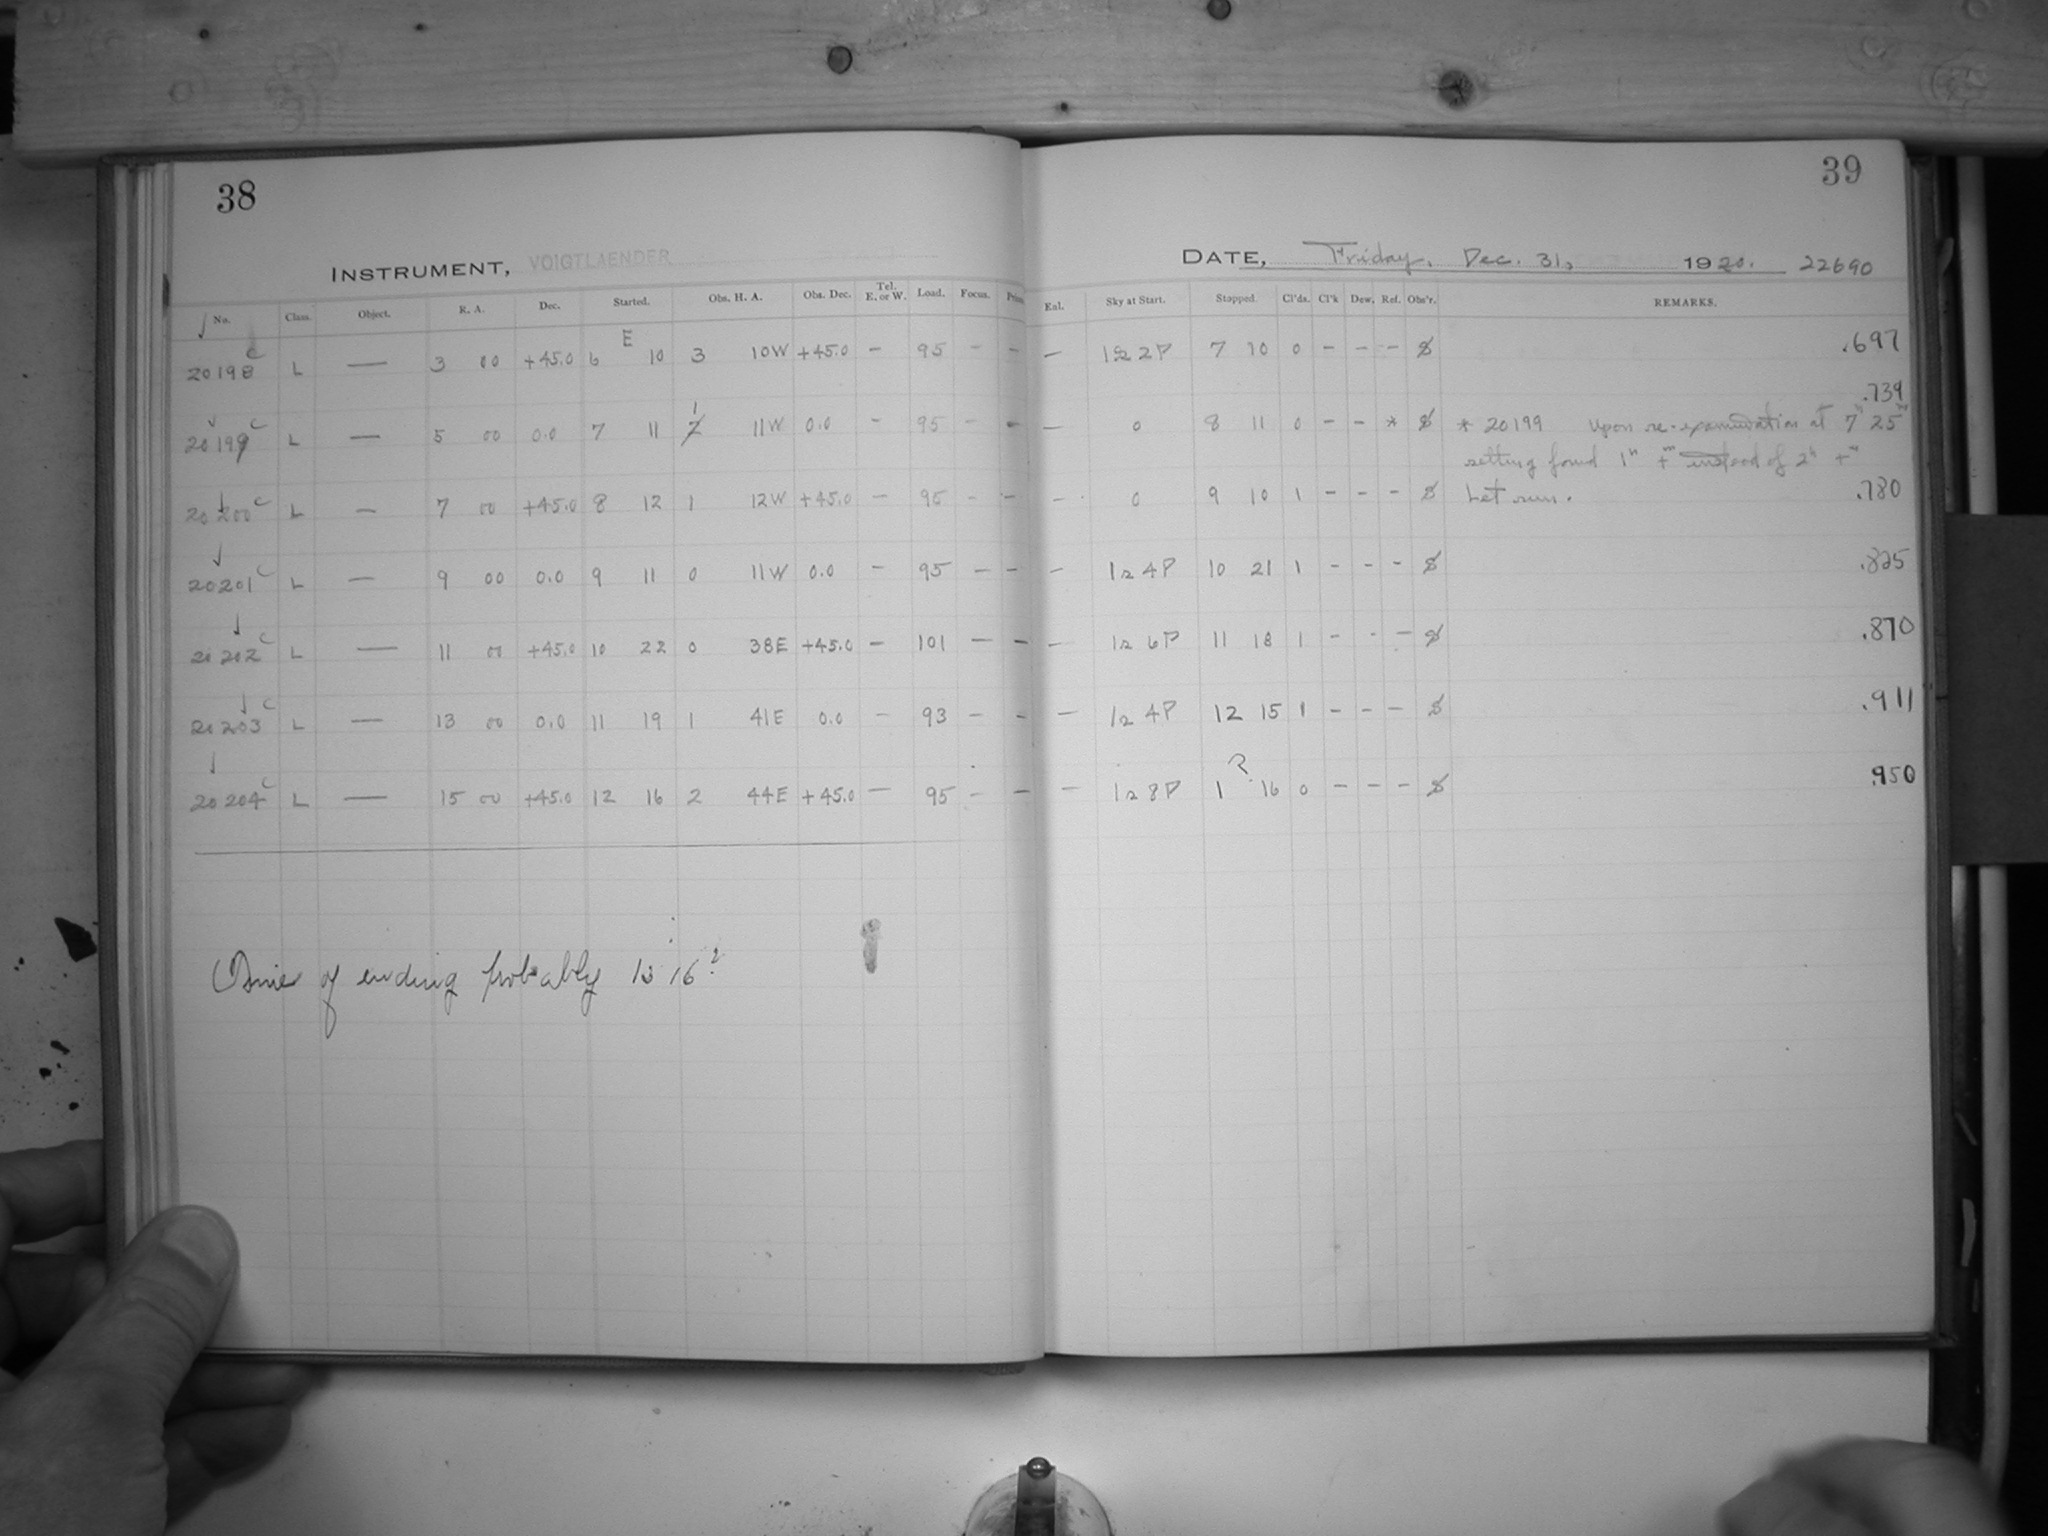 38
INSTRUMENT, VOIGTLAENDER
No. Class. Object. R. A. Dec. Started. Obs. H. A. Obs. Dec. Tel. E. or W. Load. Focus.
20198 C L — 3 00 +45.0 6 E 10 3 10W +45.0 — 95 — —
20199 C L — 5 00 0.0 7 11 2 1 11W 0.0 — 95 — —
20200 C L — 7 00 +45.0 8 12 1 12W +45.0 — 95 — —
20201 C L — 9 00 0.0 9 11 0 11W 0.0 — 95 — —
20202 C L — 11 00 +45.0 10 22 0 38E +45.0 — 101 — —
20203 C L — 13 00 0.0 11 19 1 41E 0.0 — 93 — —
20204 C L — 15 00 +45.0 12 16 2 44E +45.0 — 95 — —
Time of ending probably 13 16?
39
DATE, Friday, Dec. 31, 1920. 22690
Exl. Sky at Start. Stopped. Cl'ds. Cl'k Dew. Ref. Obs'r. REMARKS.
— 12 2P 7 10 0 — — — S .697
.739
— 0 8 11 0 — — * S * 20199 Upon re-examination at 7h 25m
setting found 1h +m instead of 2h +m
— 0 9 10 1 — — — S Let run. .780
— 12 4P 10 21 1 — — — S .825
— 12 6P 11 18 1 — — — S .870
— 12 4P 12 15 1 — — — S .911
— 12 8P 1 ? 16 0 — — — S .950